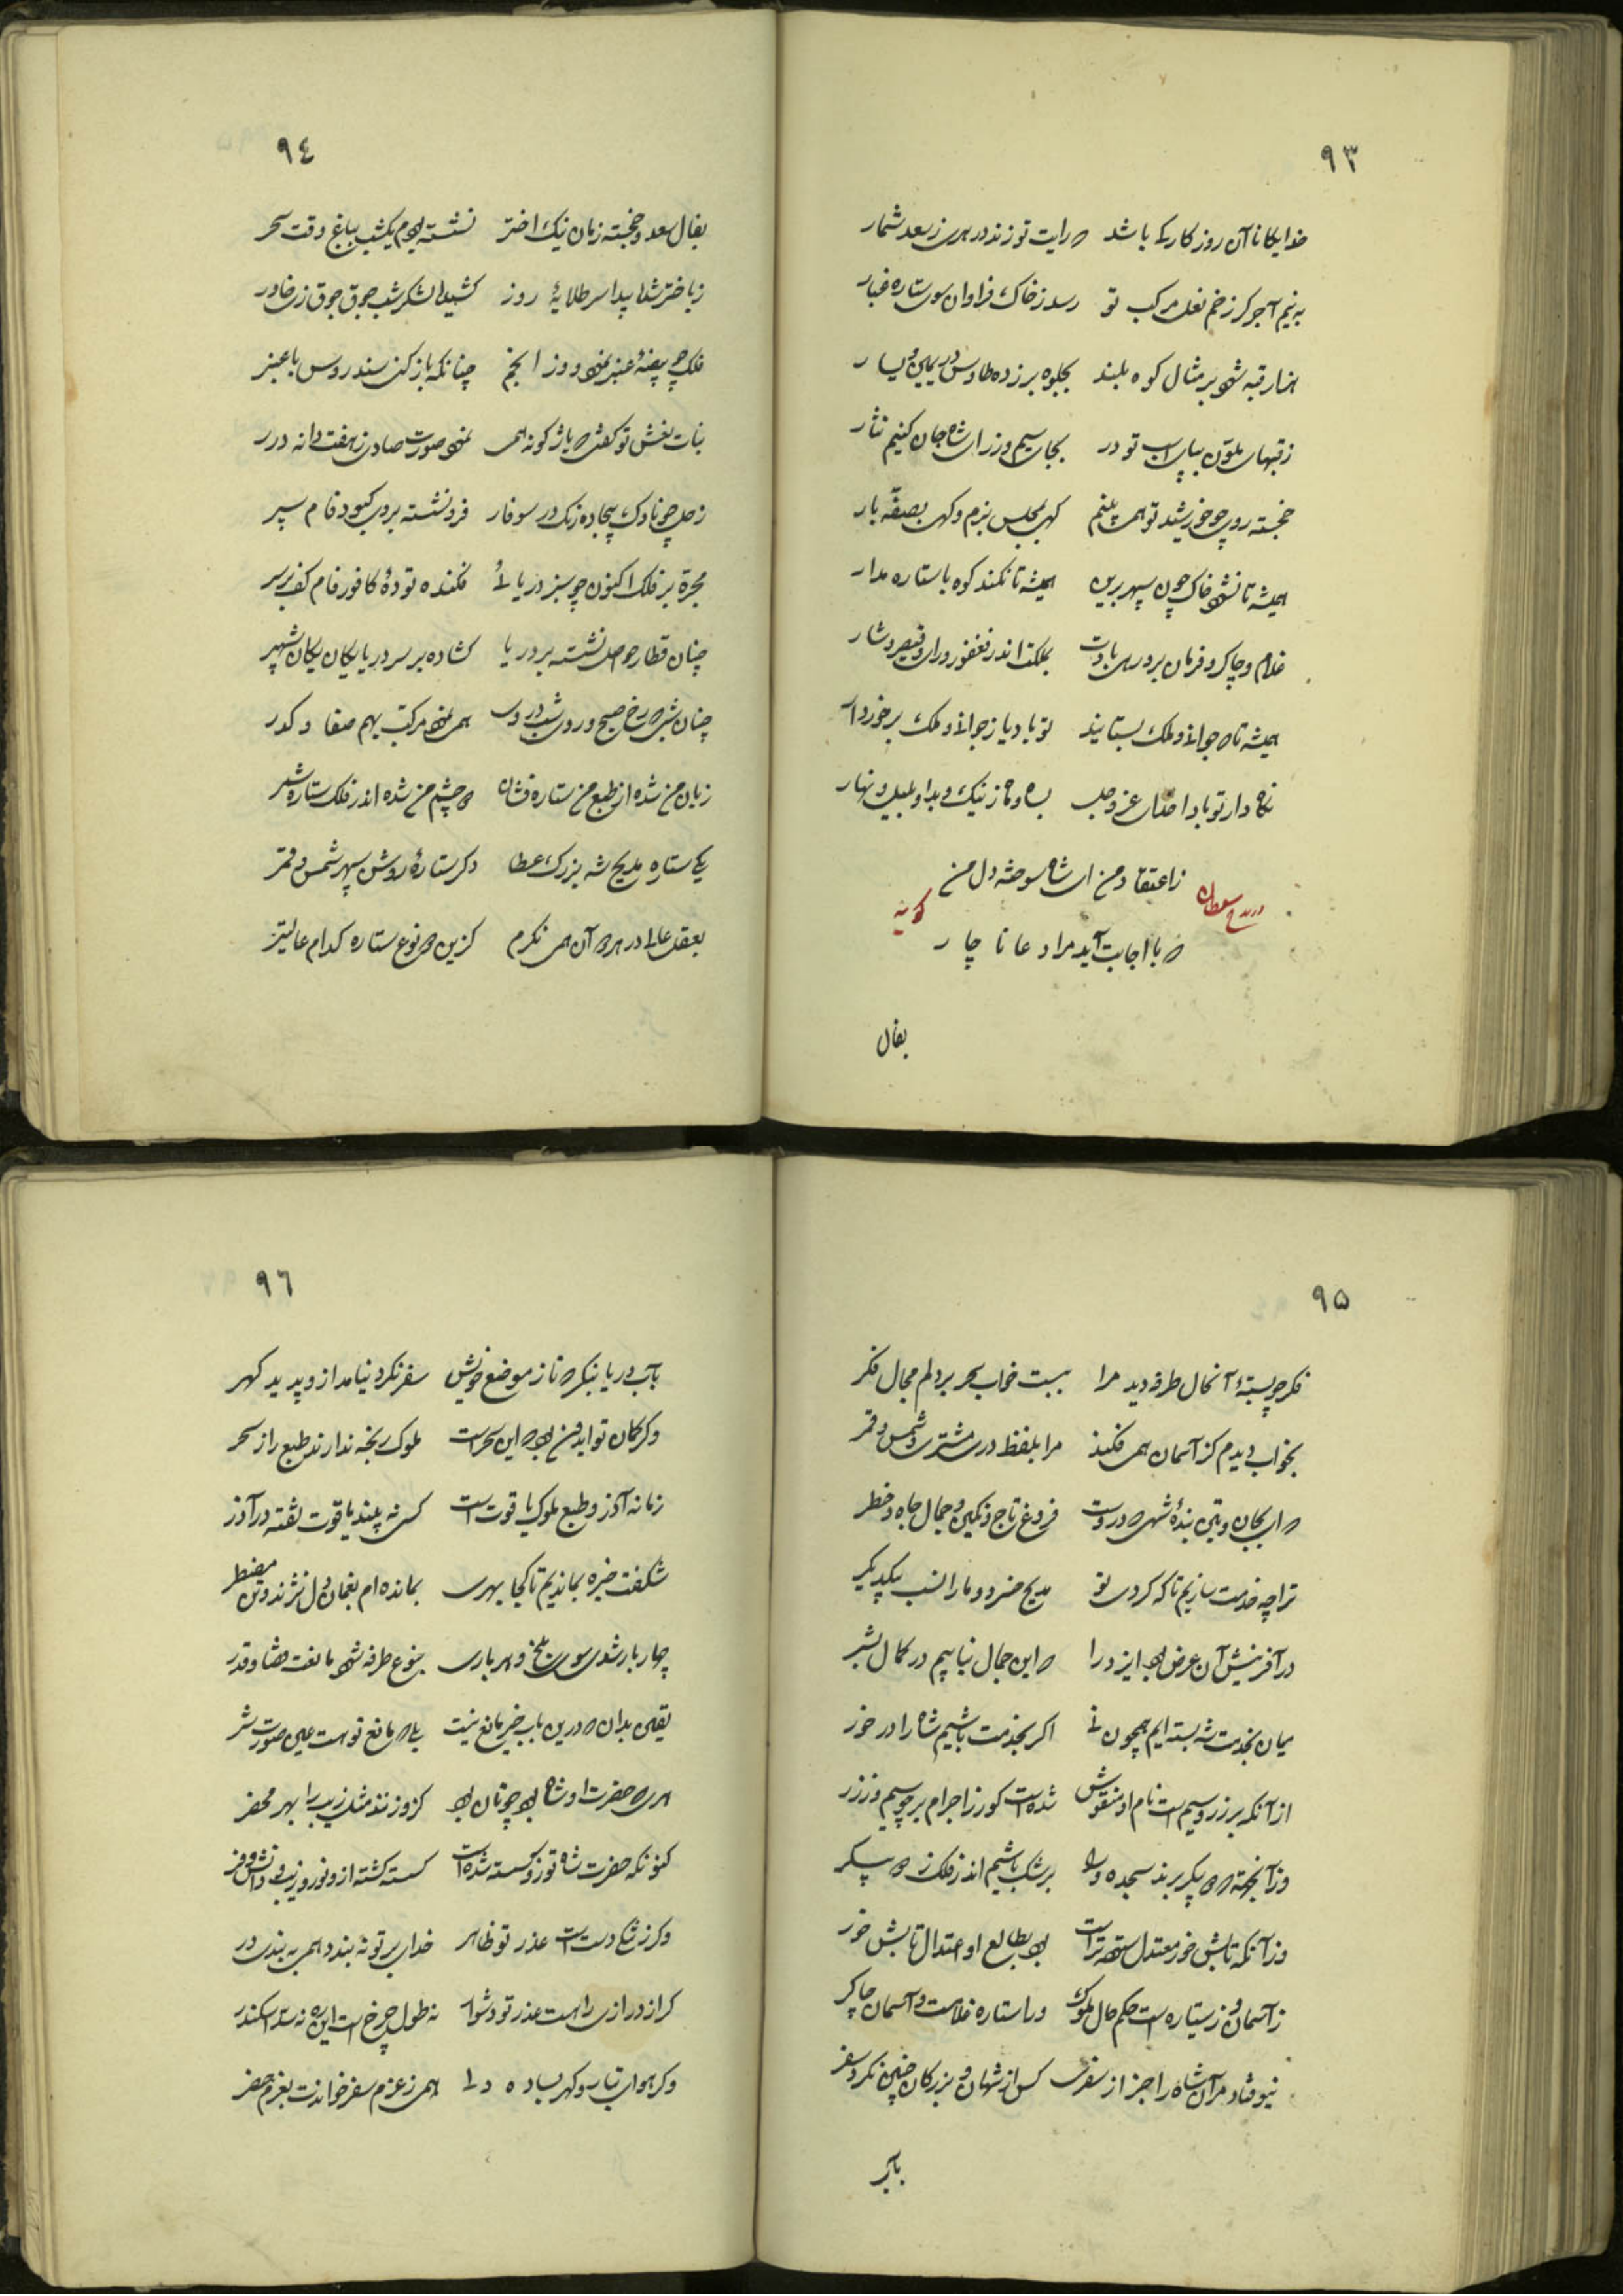 ٩٣
خدایکانا آن روزکار کی باشد که رایت تو زند در هری ز سعد شمار
به نیم آجر کز زخم نعل مرکب تو رسد ز خاک فراوان سوی ستاره غبار
هزار قبه شود بر مثال کوه بلند بجلوه بر زده طاوس در یمین و یسار
ز قبهای ملون بپای اسب تو در بجای سیم و زر ای شاه جان کنیم نثار
خجسته روی چو خورشید تو همی بینم کهی بمجلس بزم و کهی بصفّه بار
همیشه تا نشود خاک چون سپهر برین همیشه تا نکند کوه با ستاره مدار
غلام و چاکر و فرمان بر و رهی بادت بملکت اندر فغفور و رای و قیصر و شار
همیشه تا که جوانی و ملک بستایند تو باد یاز جوانی و ملک برخوردار
نکاه دار تو بادا خدای عز و جل بسال و ماه ز نیک و بد و بلیل و نهار
ز اعتقاد من ای شاه سوخته دل من
که با اجابت آید مرا دعا ناچار
در مدح سلطان کوید
بفال
٩٤
بفال سعد و خجسته زمان نیک اختر نشسته بودم یکشب بباغ وقت سحر
ز باختر شده پیدا سر طلایهٔ روز کشیده لشکر شب جوق جوق زی خاور
فلک چو بیضهٔ عنبر نمود و زو انجم چنانکه باز کنی سندروس با عنبر
بنات نعش تو کفتی که باژکونه همی نمود صورت صادی ز هفت دانه درر
زحل چو ناوک بیجاده رنک در سوفار فرو نشسته بروی کبود فام سپر
مجرة بر فلک اکنون چو سبز دریائی فکنده تودهٔ کافور فام کف بر سر
چنان قطار حواصل نشسته بر دریا کشاده بر سر دریا یکان یکان شهپر
چنان شبی که رخ صبح و روی شب در وی همی نمود مرکب بهم صفا و کدر
زبان من شده از طبع من ستاره فشان دو چشم من شده اندر فلک ستاره شمر
یکی ستاره مدیح شه بزرک عطا دکر ستارهٔ روشن سپهر شمس و قمر
بعقل عالی در هر دو آن همی نکرم کزین دو نوع ستاره کدام عالیتر
٩٥
فکر چو بستهٔ آنحال طرفه دید مرا ببست خواب سحر بر دلم مجال فکر
بخواب دیدم کز آسمان همی فکند مرا بلفظ دری مشتری و شمس و قمر
که ای بجان و بتن بندهٔ شهی که دروست فروغ تاج و نکین و جمال جاه و خطر
ترا چه خدمت سازیم تا که کردی تو مدیح خسرو و ما را نسب بیکدیکر
در آفرینش آن عرض بود ایزد را که این جمال نیابیم در کمال بشر
میان بخدمت شه بسته ایم همچون نی اکر بخدمت باشیم شاه را در خور
از آنکه بر زر و سیم است نام او منقوش شده است کور ز اجرام بر چو سیم و زر
وزآنجهة که دو پیکر برند سجده ورا برشک باشیم اندر فلک ز دو پیکر
وز آنکه تابش خور معتدل ستوده تر است بود بطالع او اعتدال تابش خور
ز آسمان و ز سیاره است حکم حال ملوک ورا ستاره غلامست و آسمان چاکر
نیوفتاد مر آن شاه را جز از سفری کس از شهان و بزرکان چنین نکرد سفر
بآب
٩٦
بآب دریا بنکر که تا ز موضع خویش سفر نکرد نیامد ازو پدید کهر
وکر کمان تو ایدون بود که این سحر است ملوک رنجه ندارند طبع را ز سحر
زمانه آذر و طبع ملوک یاقوت است کسی نه بیند یاقوت تفته در آذر
شکفت خیره بماندیم تا کجا بهری بمانده ام بغمان دل نژند و تن مضطر
چهار بار شدی سوی بلخ و هر باری بنوع طرفه شود مانعت قضا و قدر
یقین بدان که درین باب خیر مانع نیست بلی که مانع تو هست عین صورت شر
هری که حضرت او شاه بود چونان بود کزو زدند مثل زیب را بهر محضر
کنونکه حضرت شاه تو زو کسسته شده است کسسته کشته ازو نور و زیب و دانش و فر
وکر ز تنک دستی است عذر تو ظاهر خدای بر تو نه بندد همی به بندی در
کر از درازی راهست عذر تو دشوار نه طول چرخست این ره نه سد اسکندر
وکر هوای تباه و کهر بساده دلی همی ز عزم سفر خواندت بعزم حضر